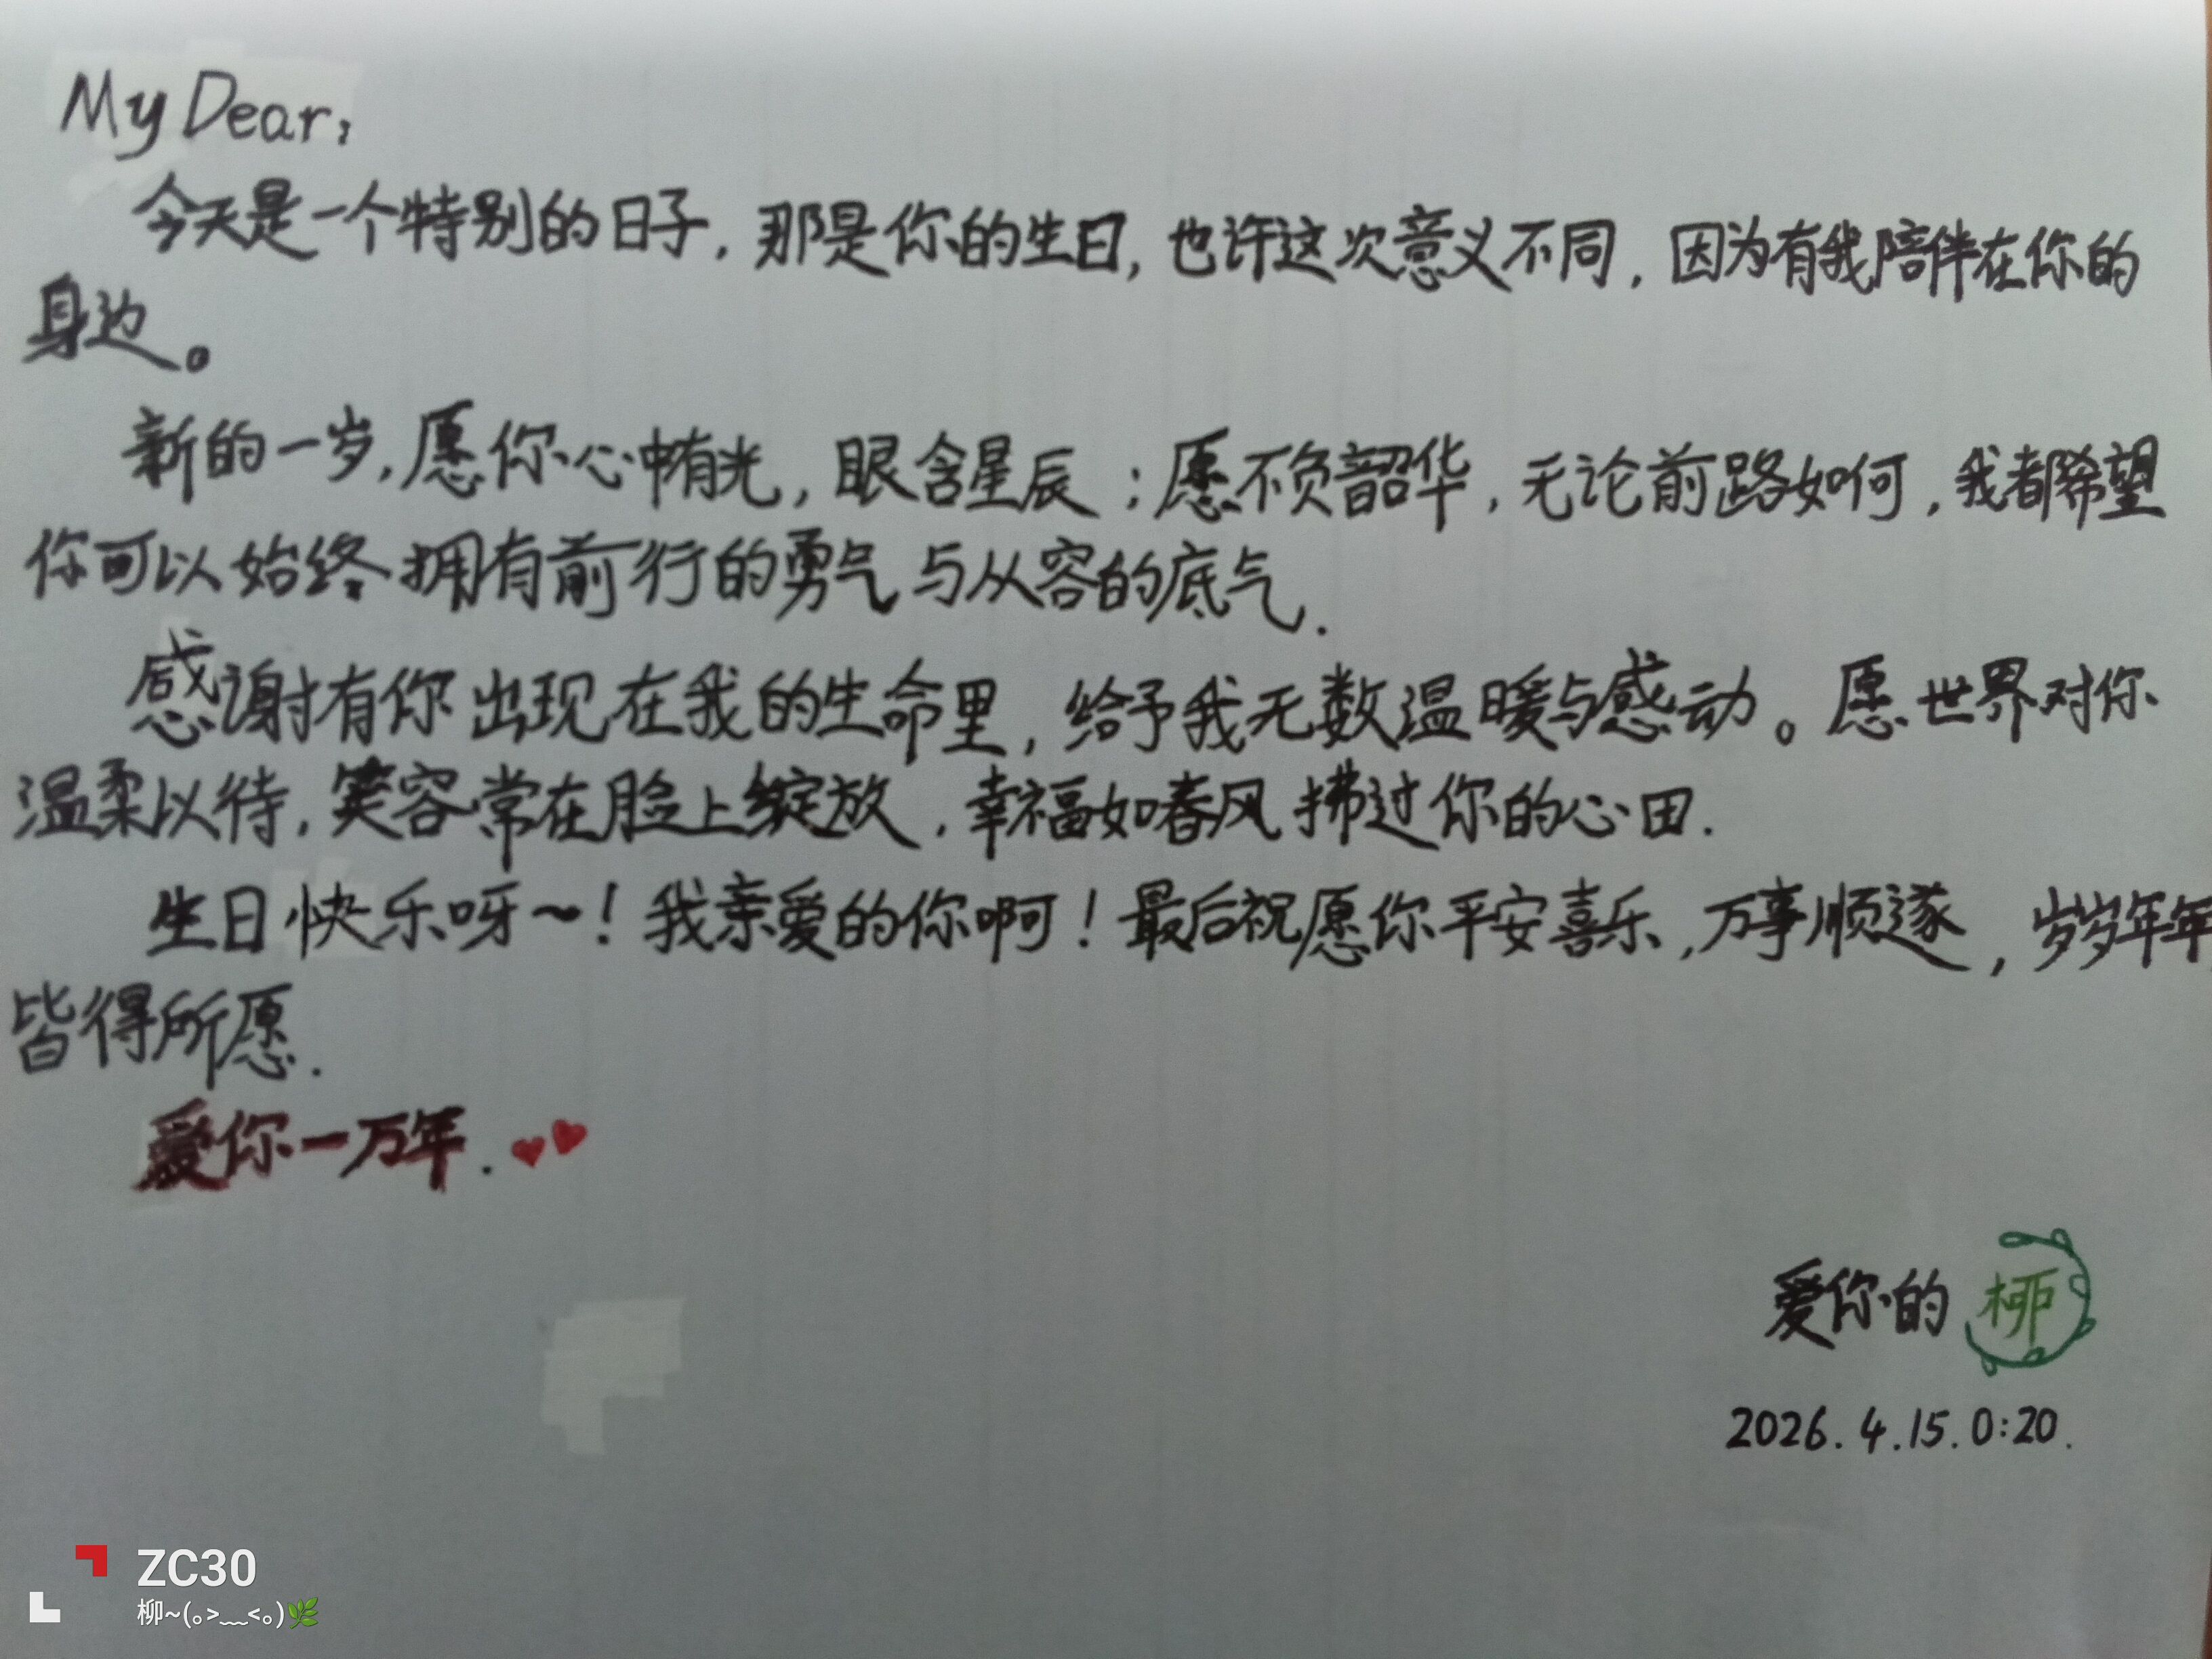 My Dear,
今天是一个特别的日子,那是你的生日,也许这次意义不同,因为有我陪伴在你的
身边。
新的一岁,愿你心中有光,眼含星辰;愿不负韶华,无论前路如何,我都希望
你可以始终拥有前行的勇气与从容的底气.
感谢有你出现在我的生命里,给予我无数温暖与感动。愿世界对你
温柔以待,笑容常在脸上绽放,幸福如春风拂过你的心田.
生日快乐呀~!我亲爱的你啊!最后祝愿你平安喜乐,万事顺遂,岁岁年年
皆得所愿.
爱你一万年.
爱你的柳
2026.4.15.0:20.
ZC30
柳~(｡>﹏<｡)🌿